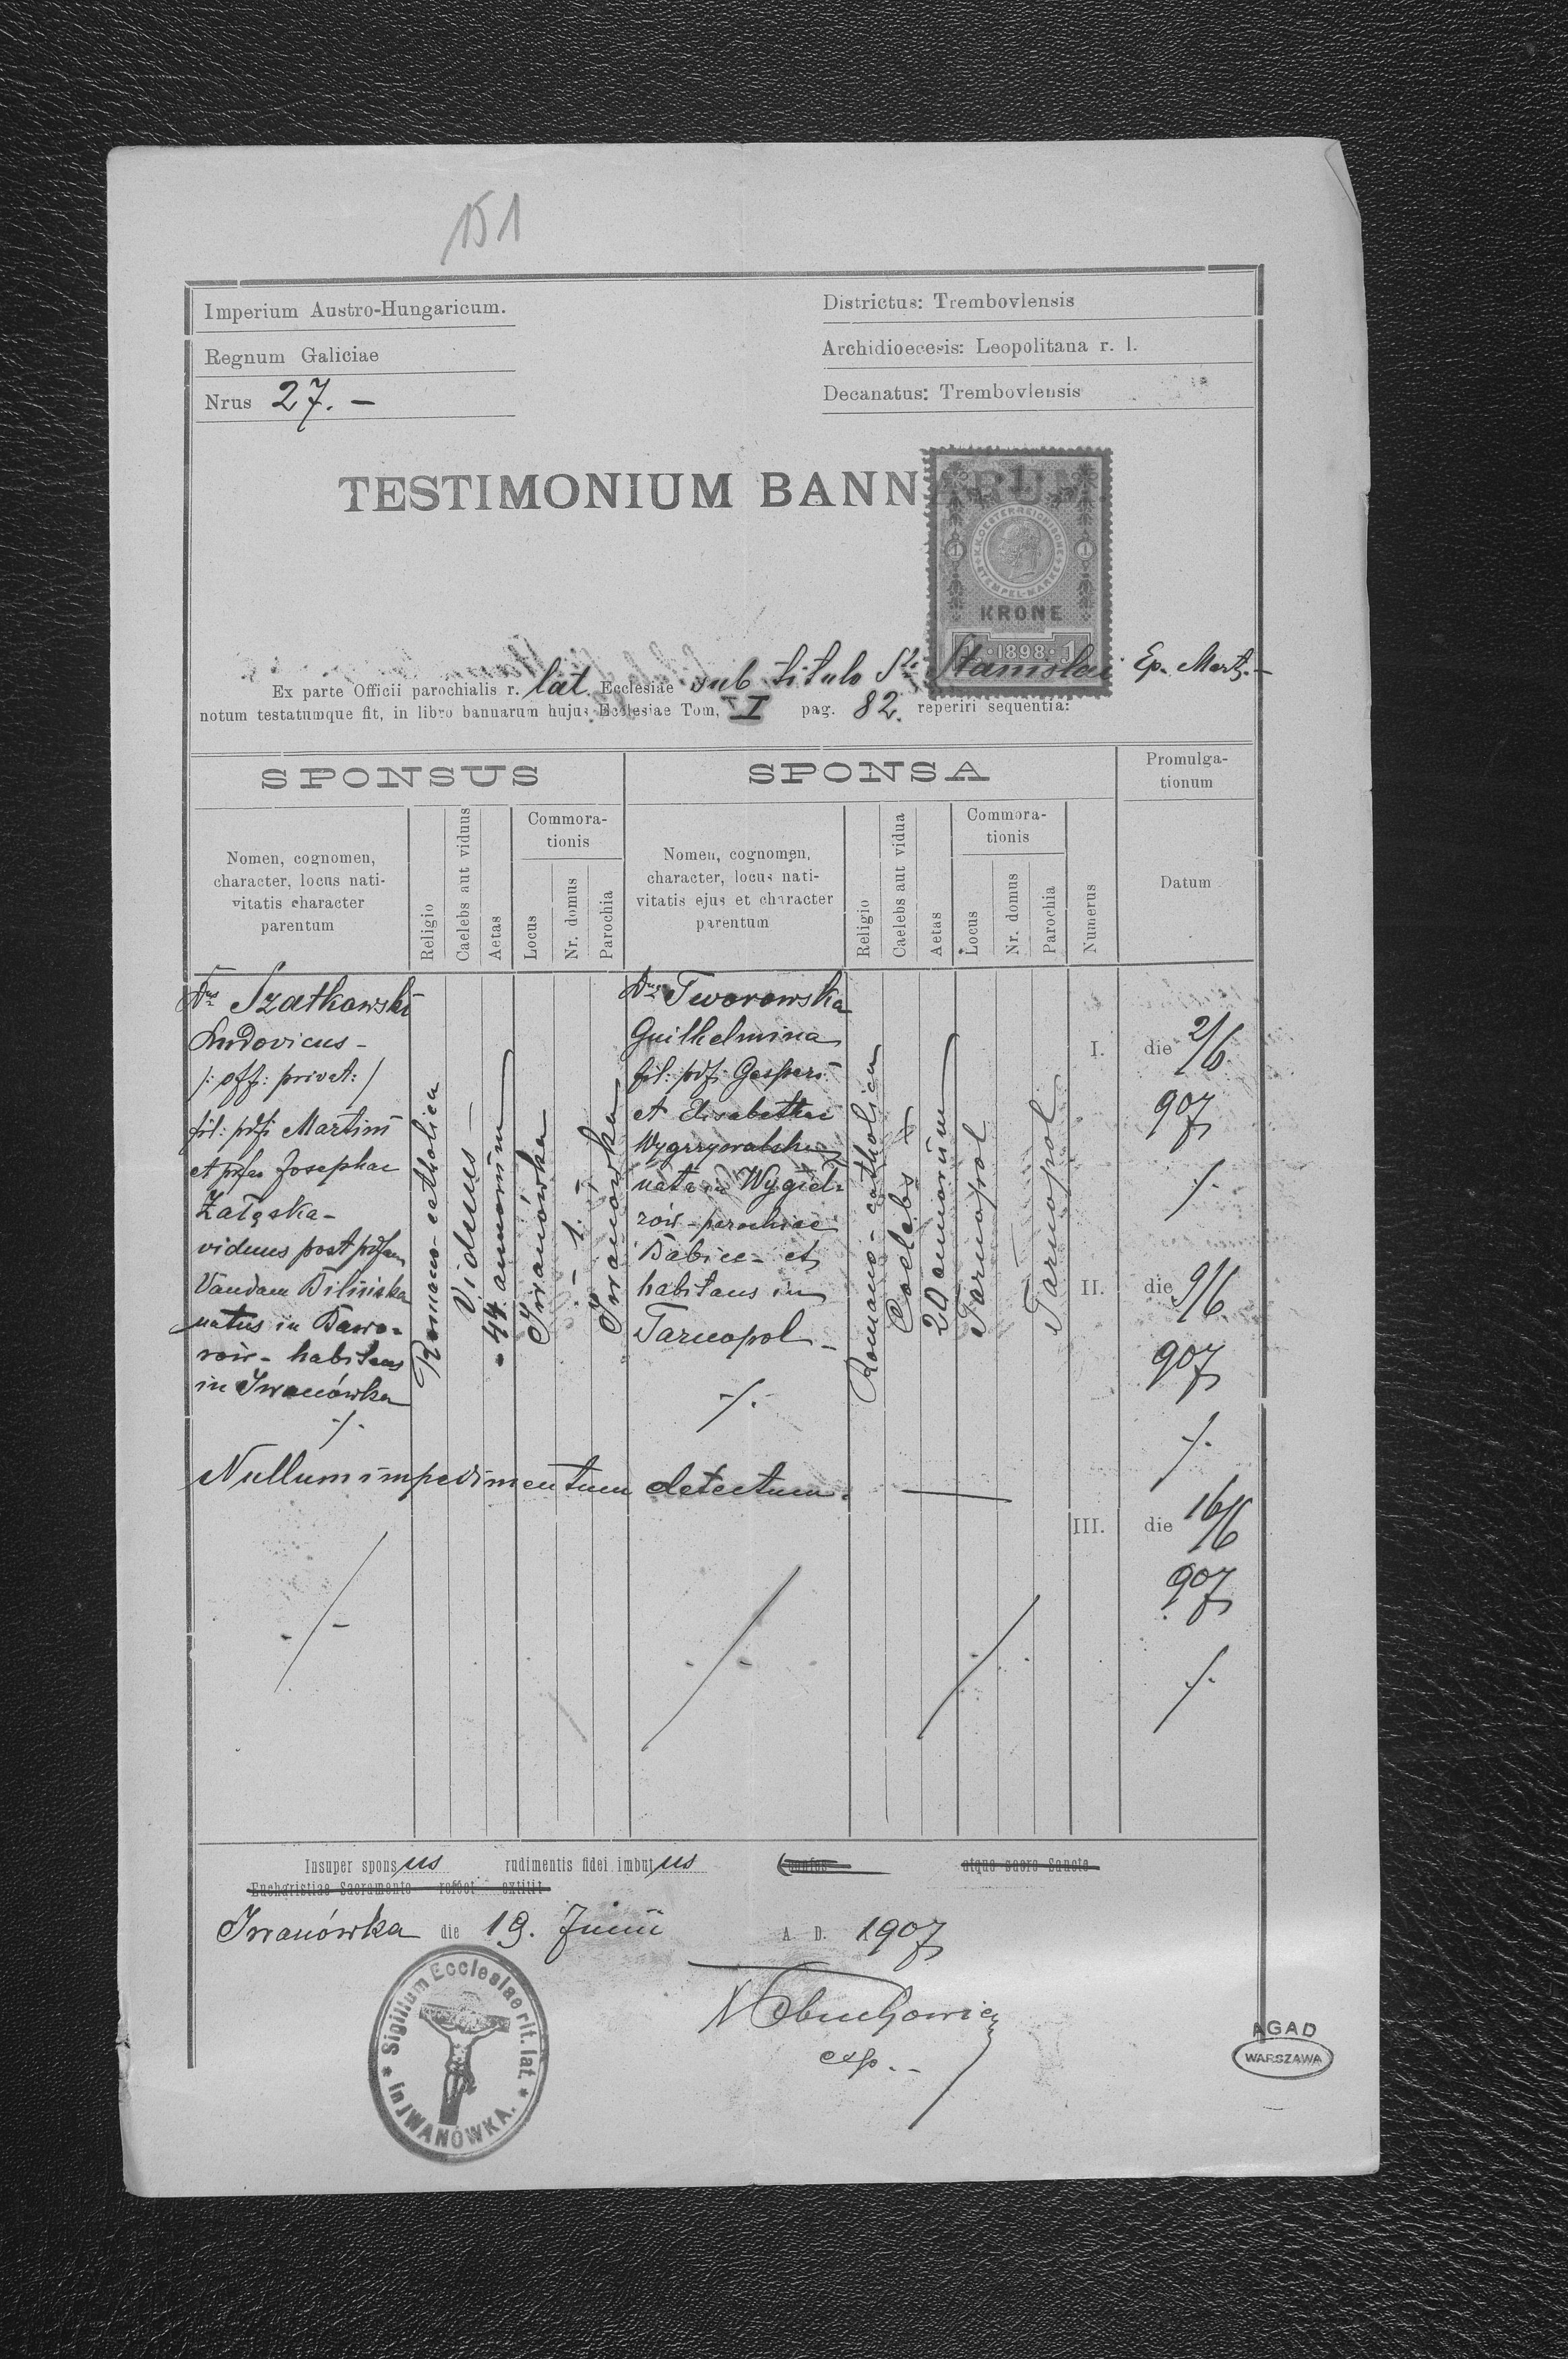 151
Imperium Austro-Hungaricum.
Regnum Galiciae
Nrus 27. –
Districtus: Trembovlensis
Archidioecesis: Leopolitana r. l.
Decanatus: Trembovlensis
TESTIMONIUM BANNARUM
1
K.K. OESTERREICHISCHE STEMPEL-MARKE
1 1
KRONE
1898 1
Ex parte Officii parochialis r. lat. Ecclesiae sub titulo Sti Stanislai Ep. Mart. –
notum testatumque fit, in libro bannarum hujus Ecclesiae Tom. I pag. 82. reperiri sequentia:
SPONSUS
SPONSA
Promulga-
tionum
Nomen, cognomen,
character, locus nati-
vitatis character
parentum
Religio
Caelebs aut viduus
Aetas
Commora-
tionis
Locus
Nr. domus
Parochia
Nomen, cognomen,
character, locus nati-
vitatis ejus et character
parentum
Religio
Caelebs aut vidua
Aetas
Commora-
tionis
Locus
Nr. domus
Parochia
Numerus
Datum
Dnus Szatkowski
Ludovicus –
/: off: privat: /
fil: pdfi Martini
et Josephae
Załęska –
viduus post
Vandam Bilińska
natus in Bawo-
rów – habitans
in Iwanówka
Romano-catholica
Viduus –
44 annorum
Iwanówka
– 1. –
Iwanówka
Dna Tworowska
Guilhelmina
fil: pdfi Gaspari
et Elisabethae
nata in Wygieł-
zów – parochiae
Babice – et
habitans in
Tarnopol –
Romano-catholica
Coelebs
20 annorum
Tarnopol
Tarnopol
I. die 2/6
907
II. die 9/6
907
III. die 16/6
907
Nullum impedimentum detectum. –
Insuper sponsus rudimentis fidei imbutus atque sacro sancto
Eucharistiae Sacramento refect extitit
Iwanówka die 19. Junii A. D. 1907
Obuchowicz
exp. –
Sigillum Ecclesiae rit. lat. * in IWANÓWKA. *
AGAD
WARSZAWA